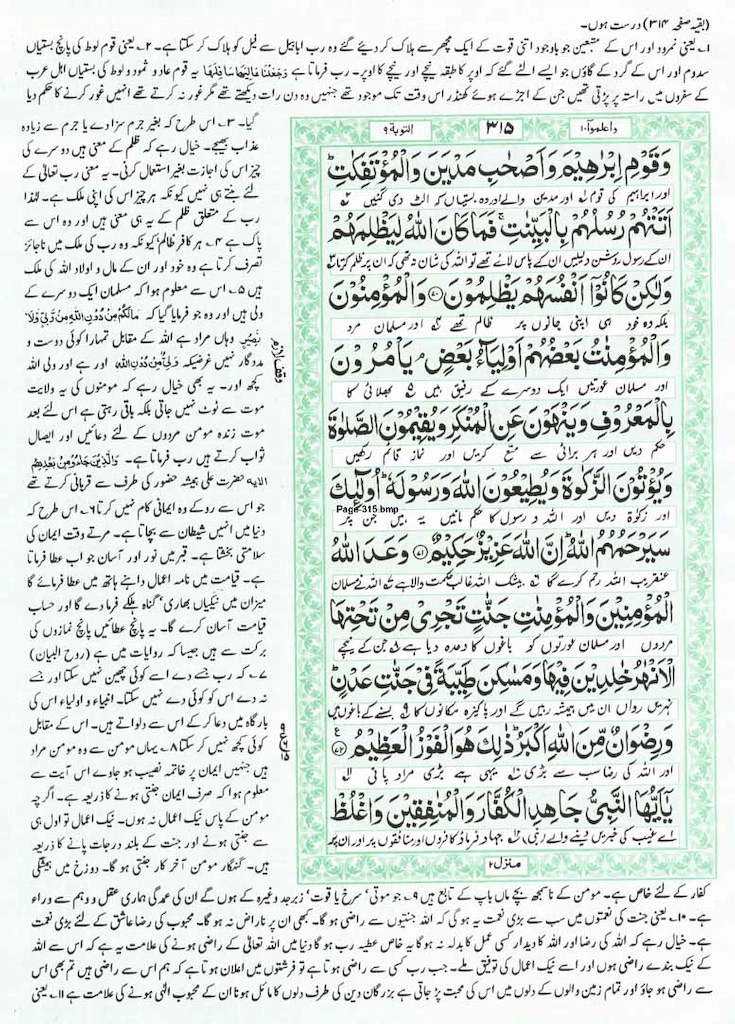 (بقیہ صفحہ ۳۱۴) درست ہوں۔
۱۔ یعنی نمرود اور اس کے متبعین جو باوجود اتنی قوت کے ایک مچھر سے ہلاک کر دیئے گئے وہ رب ابابیل سے فیل کو ہلاک کر سکتا ہے۔ ۲۔ یعنی قوم لوط کی پانچ بستیاں
سدوم اور اس کے گرد کے گاؤں جو ایسے الٹے گئے کہ اوپر کا طبقہ نیچے اور نیچے کا اوپر۔ رب فرماتا ہے وَجَعَلْنَا عَالِيَهَا سَافِلَهَا یہ قوم عاد و ثمود و لوط کی بستیاں اہل عرب
کے سفروں میں راستہ پر پڑتی تھیں جن کے اجڑے ہوئے کھنڈر اس وقت تک موجود تھے جنہیں وہ دن رات دیکھتے تھے مگر غور نہ کرتے تھے انہیں غور کرنے کا حکم دیا
گیا۔ ۳۔ اس طرح کہ بغیر جرم سزا دے یا جرم سے زیادہ
عذاب بھیجے۔ خیال رہے کہ ظلم کے معنی ہیں دوسرے کی
چیز اس کی اجازت بغیر استعمال کرنی۔ یہ معنی رب تعالیٰ کے
لئے بنتے ہی نہیں کیونکہ ہر چیز اس کی اپنی ملک ہے۔ لہٰذا
رب کے متعلق ظلم کے یہ ہی معنی ہیں اور وہ اس سے
پاک ہے ۴۔ ہر کافر ظالم ہے کیونکہ وہ رب کی ملک میں ناجائز
تصرف کرتا ہے وہ خود اور ان کے مال و اولاد اللہ کی ملک
ہیں ۵۔ اس سے معلوم ہوا کہ مسلمان ایک دوسرے کے
ولی ہیں اور وہ جو فرمایا گیا کہ مَالَكُمْ مِنْ دُوْنِ اللهِ مِنْ وَّلِيٍّ وَّلَا
نَصِيْرٍ وہاں مراد ہے اللہ کے مقابل تمہارا کوئی دوست و
مددگار نہیں غرضیکہ وَلِيٌّ مِنْ دُوْنِ اللهِ اور ہے اور ولی اللہ
کچھ اور۔ یہ بھی خیال رہے کہ مومنوں کی یہ ولایت
موت سے ٹوٹ نہیں جاتی بلکہ باقی رہتی ہے اس لئے بعد
موت زندہ مومن مردوں کے لئے دعائیں اور ایصال
ثواب کرتے ہیں رب فرماتا ہے۔ وَالَّذِيْنَ جَاءُوْ مِنْ بَعْدِهِمْ
الآیہ حضرت علی ہمیشہ حضور کی طرف سے قربانی کرتے تھے
جو اس سے روکے وہ ایمانی کام نہیں کرتا ۶۔ اس طرح کہ
دنیا میں انہیں شیطان سے بچاتا ہے۔ مرتے وقت ایمان کی
سلامتی بخشتا ہے۔ قبر میں نور اور آسان جواب عطا فرماتا
ہے۔ قیامت میں نامہ اعمال داہنے ہاتھ میں عطا فرمائے گا
میزان میں نیکیاں بھاری، گناہ ہلکے فرما دے گا اور حساب
قیامت آسان کرے گا۔ یہ پانچ عطائیں پانچ نمازوں کی
برکت سے ہیں جیسا کہ روایات میں ہے (روح البیان)
۷۔ کہ رب جسے دے اسے کوئی چھین نہیں سکتا اور جسے
نہ دے اس کو کوئی دے نہیں سکتا۔ انبیاء و اولیاء اس کی
بارگاہ میں دعا کر کے اس سے دلواتے ہیں۔ اس کے مقابل
کوئی کچھ نہیں کر سکتا ۸۔ یہاں مومن سے وہ مومن مراد
ہیں جنہیں ایمان پر خاتمہ نصیب ہو جاوے اس آیت سے
معلوم ہوا کہ صرف ایمان جنتی ہونے کا ذریعہ ہے۔ اگرچہ
مومن کے پاس نیک اعمال نہ ہوں۔ نیک اعمال تو اول ہی
سے جنتی ہونے اور جنت کے بلند درجات پانے کا ذریعہ
ہیں۔ گنہگار مومن آخر کار جنتی ہو گا۔ دوزخ میں ہمیشگی
وقف لازم
واعلموا ۱۰
۳۱۵
التوبة ۹
وَقَوْمِ اِبْرٰهِيْمَ وَاَصْحٰبِ مَدْيَنَ وَالْمُؤْتَفِكٰتِ
اور ابراہیم کی قوم اور مدین والے اور وہ بستیاں کہ الٹ دی گئیں
اَتَتْهُمْ رُسُلُهُمْ بِالْبَيِّنٰتِ فَمَا كَانَ اللّٰهُ لِيَظْلِمَهُمْ
ان کے رسول روشن دلیلیں ان کے پاس لائے تھے تو اللہ کی شان نہ تھی کہ ان پر ظلم کرتا
وَلٰكِنْ كَانُوْٓا اَنْفُسَهُمْ يَظْلِمُوْنَ ﴿۷۰﴾ وَالْمُؤْمِنُوْنَ
بلکہ وہ خود ہی اپنی جانوں پر ظالم تھے اور مسلمان مرد
وَالْمُؤْمِنٰتُ بَعْضُهُمْ اَوْلِيَآءُ بَعْضٍ يَاْمُرُوْنَ
اور مسلمان عورتیں ایک دوسرے کے رفیق ہیں بھلائی کا
بِالْمَعْرُوْفِ وَيَنْهَوْنَ عَنِ الْمُنْكَرِ وَيُقِيْمُوْنَ الصَّلٰوةَ
حکم دیں اور ہر برائی سے منع کریں اور نماز قائم رکھیں
وَيُؤْتُوْنَ الزَّكٰوةَ وَيُطِيْعُوْنَ اللّٰهَ وَرَسُوْلَهٗ اُولٰٓئِكَ
Page-315.bmp
اور زکوٰۃ دیں اور اللہ و رسول کا حکم مانیں یہ ہیں جن پر
سَيَرْحَمُهُمُ اللّٰهُ اِنَّ اللّٰهَ عَزِيْزٌ حَكِيْمٌ ﴿۷۱﴾ وَعَدَ اللّٰهُ
عنقریب اللہ رحم کرے گا بیشک اللہ غالب حکمت والا ہے اللہ نے مسلمان
الْمُؤْمِنِيْنَ وَالْمُؤْمِنٰتِ جَنّٰتٍ تَجْرِيْ مِنْ تَحْتِهَا
مردوں اور مسلمان عورتوں کو باغوں کا وعدہ دیا ہے جن کے نیچے
الْاَنْهٰرُ خٰلِدِيْنَ فِيْهَا وَمَسٰكِنَ طَيِّبَةً فِيْ جَنّٰتِ عَدْنٍ
نہریں رواں ان میں ہمیشہ رہیں گے اور پاکیزہ مکانوں کا بسنے کے باغوں میں
وَرِضْوَانٌ مِّنَ اللّٰهِ اَكْبَرُ ذٰلِكَ هُوَ الْفَوْزُ الْعَظِيْمُ ﴿۷۲﴾
اور اللہ کی رضا سب سے بڑی یہی ہے بڑی مراد پانی
يٰٓاَيُّهَا النَّبِيُّ جَاهِدِ الْكُفَّارَ وَالْمُنٰفِقِيْنَ وَاغْلُظْ
اے غیب کی خبریں دینے والے (نبی) جہاد فرماؤ کافروں اور منافقوں پر اور ان پر
منزل ۲
کفار کے لئے خاص ہے۔ مومن کے ناسمجھ بچے ماں باپ کے تابع ہیں ۹۔ جو موتی، سرخ یاقوت، زبرجد وغیرہ کے ہوں گے ان کی عمدگی ہماری عقل و وہم سے وراء
ہے۔ ۱۰۔ یعنی جنت کی نعمتوں میں سب سے بڑی نعمت یہ ہو گی کہ اللہ جنتیوں سے راضی ہو گا۔ کبھی ان پر ناراض نہ ہو گا۔ محبوب کی رضا عاشق کے لئے بڑی نعمت
ہے۔ خیال رہے کہ اللہ کی رضا اور اللہ کا دیدار کسی عمل کا بدلہ نہ ہو گا یہ خاص عطیہ رب ہو گا دنیا میں اللہ تعالیٰ کے راضی ہونے کی علامت یہ ہے کہ اس سے اللہ
کے نیک بندے راضی ہوں اور اسے نیک اعمال کی توفیق ملے۔ جب رب کسی سے راضی ہوتا ہے تو فرشتوں میں اعلان ہوتا ہے کہ ہم اس سے راضی ہیں تم بھی اس
سے راضی ہو جاؤ اور تمام زمین والوں کے دلوں میں اس کی محبت پڑ جاتی ہے بزرگان دین کی طرف دلوں کا مائل ہونا ان کے محبوب الٰہی ہونے کی علامت ہے ۱۱۔ یعنی